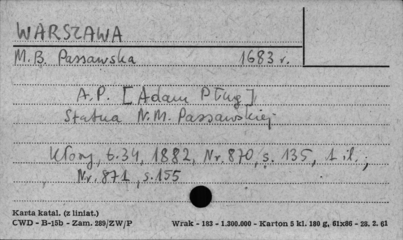 WARSZAWA
M.B. Passawska 1683 r.
A.P. [Adam Pług]
Statua N.M. Passawskiej
Kłosy, t. 34, 1882, Nr. 870, s. 135, 1 il.;
Nr. 871, s. 155
Karta katal. (z liniat.)
CWD - B-15b - Zam. 289/ZW/P Wrak - 183 - 1.300.000 - Karton 5 kl. 180 g, 61x86 - 28. 2. 61